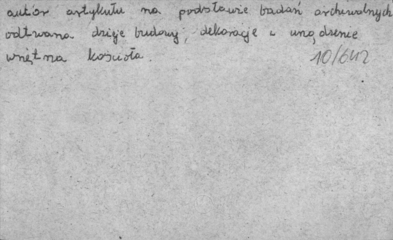 autor artykułu na podstawie badań archiwalnych
odtwana dzieje budowy, dekoracje i urządzenie
wnętrza kościoła.
10/642